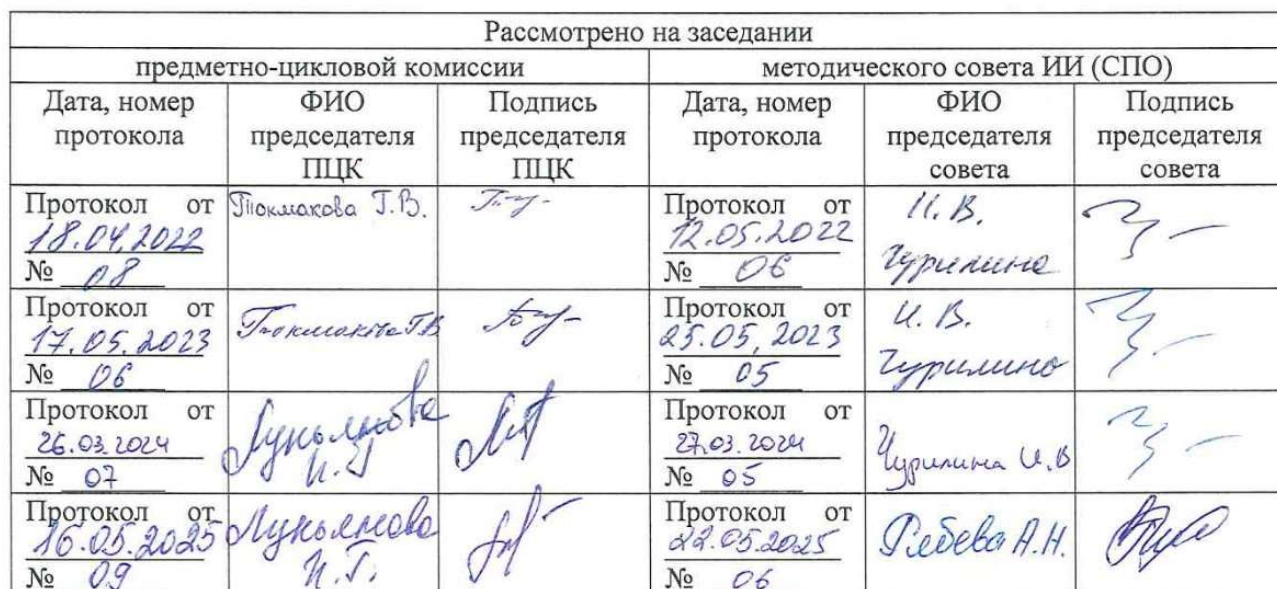 Рассмотрено на заседании
предметно-цикловой комиссии
методического совета ИИ (СПО)
Дата, номер
протокола
ФИО
председателя
ПЦК
Подпись
председателя
ПЦК
Дата, номер
протокола
ФИО
председателя
совета
Подпись
председателя
совета
Протокол от
18.04.2022
№ 08
Токмакова Г.В.
Протокол от
12.05.2022
№ 06
И.В.
Чурилина
Протокол от
17.05.2023
№ 06
Токмакова Г.В.
Протокол от
25.05.2023
№ 05
И.В.
Чурилина
Протокол от
26.03.2024
№ 07
Лукьянова
И.Г.
Протокол от
27.03.2024
№ 05
Чурилина И.В
Протокол от
16.05.2025
№ 09
Лукьянова
И.Г.
Протокол от
22.05.2025
№ 06
Рябева А.Н.